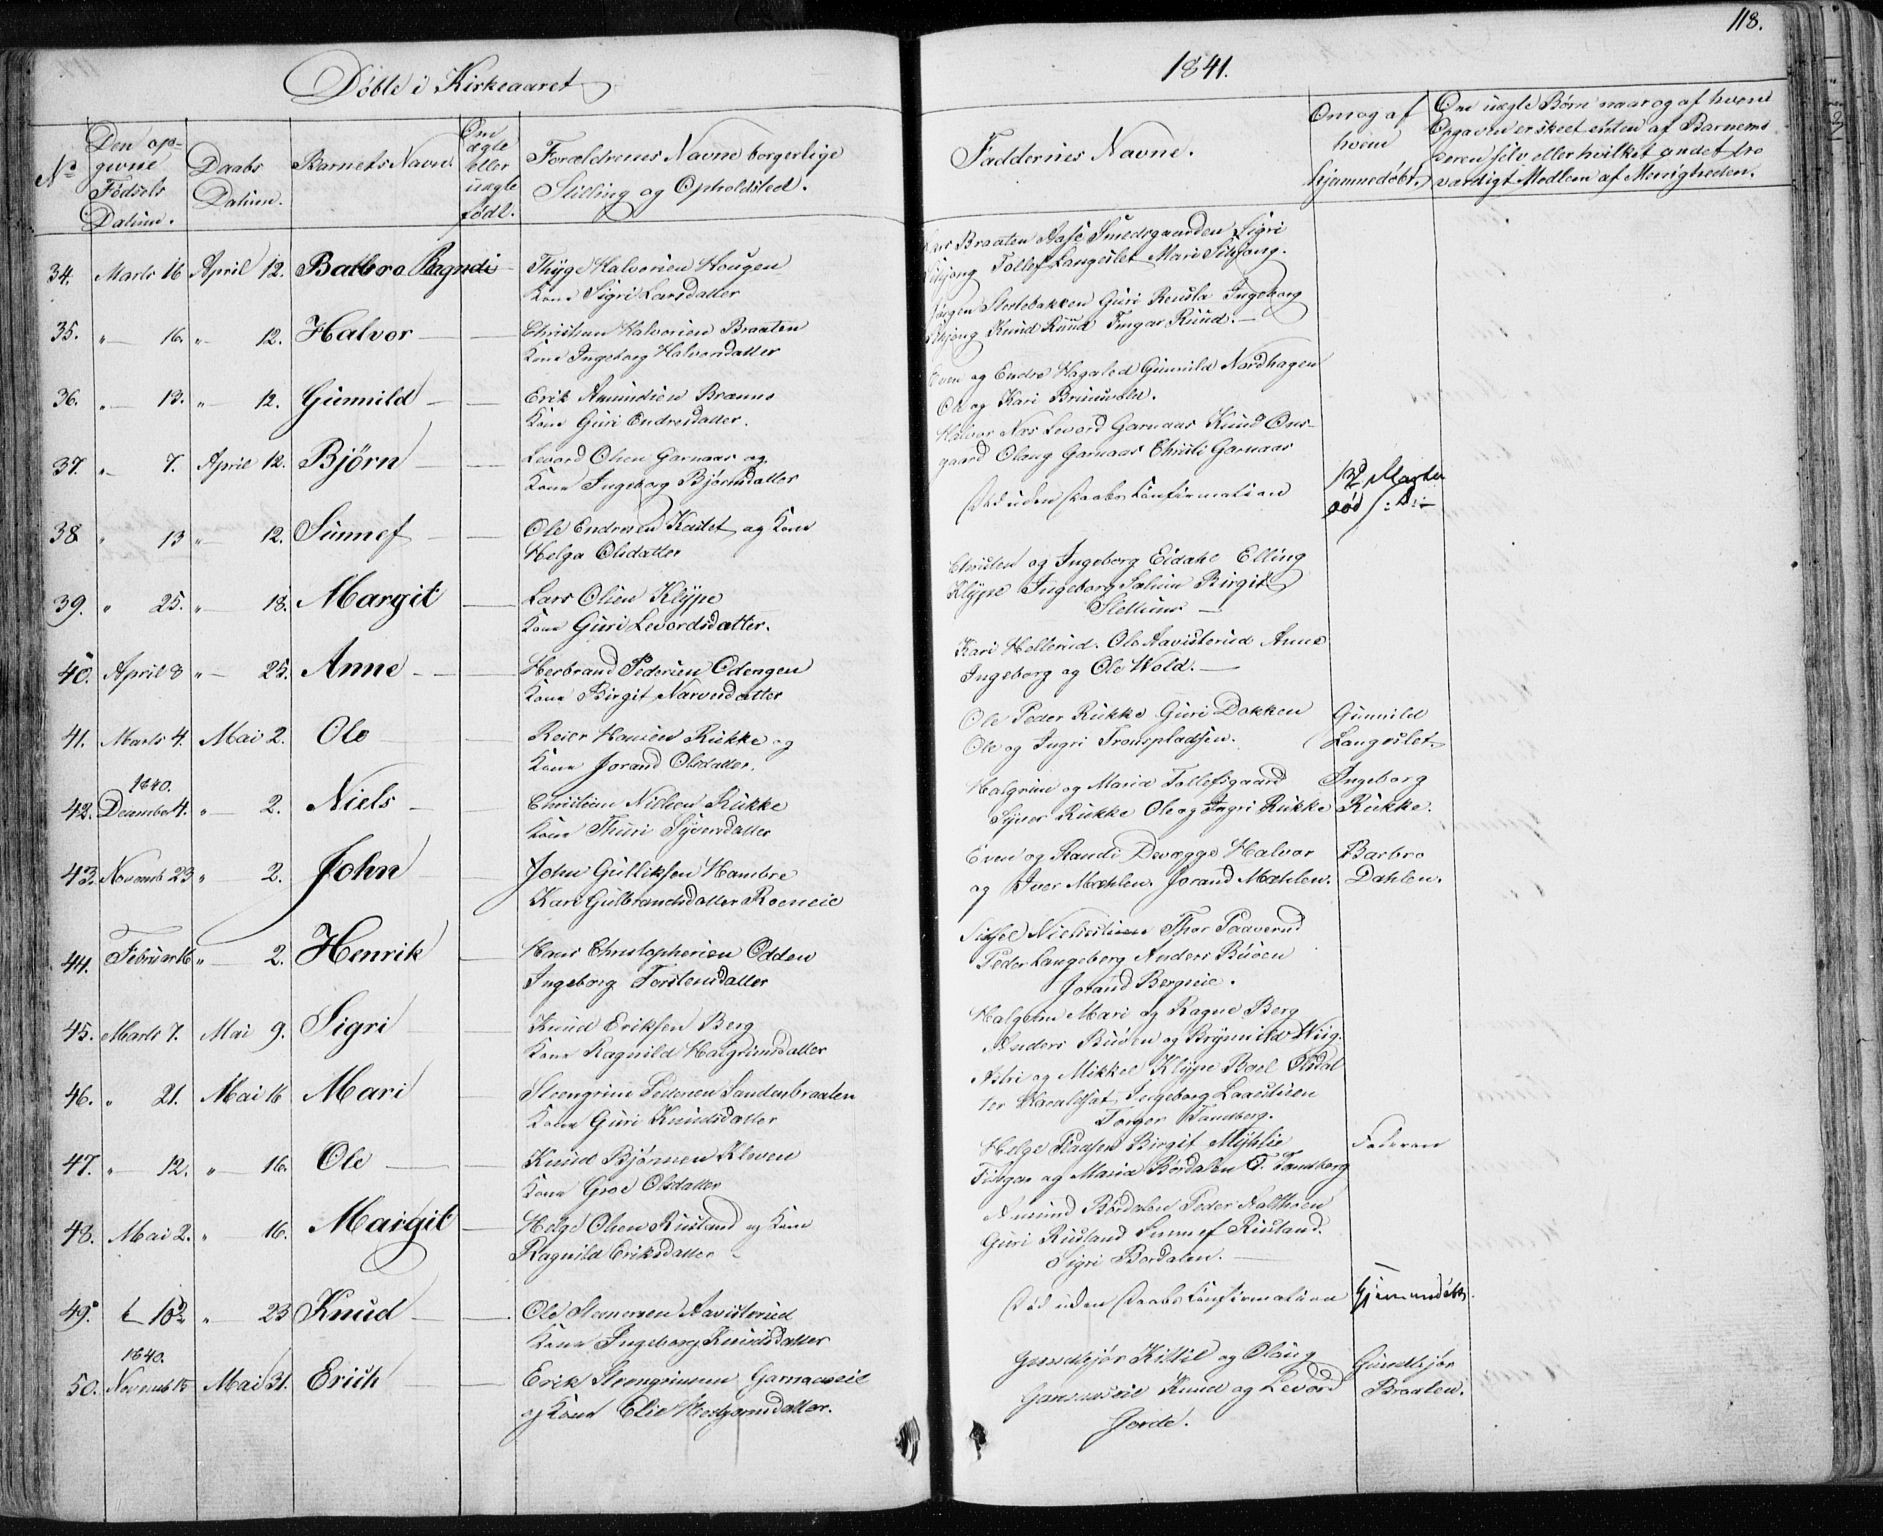 118.
Døbte i Kirkeaaret
1841.
No
Den op-
givne
Fødsels
Datum.
Daabs
Datum.
Barnets Navn.
Om
ægte
eller
uægte
født.
Forældrenes Navne borgerlige
Stilling og Opholdsted.
Faddernes Navne.
Om og af
hvem
hjemmedøbt.
Om uægte Børn naar og af hvem
Opgaven er skeet enten af Barnemo
deren selv eller hvilket andet tro
værdigt Medlem af Menigheden.
34. Marts 16 April 12. Barbro Ragndi Thyge Halvorsen Hougen
Kone Sigri Larsdatter
Braaten Aase Smedsgaarden Sigri
Tollef Langeslet Mari
35. " 16. " 12. Halvor — Christian Halvorsen Braaten
Kone Ingeborg Halvorsdatter
Guri Ingeborg
Knud Ruud Ingar Ruud.
36. " 13. " 12. Gunnild — Erik Amundsen
Kone Guri Endresdatter.
Even og Endre Hagaled Gunnild Nordhagen
Ole og Kari
37. " 7. April 12. Bjørn — Levord Olsen Garnaas og
Kone Ingeborg Bjørnsdatter
Halvor Næs Levord Garnaas Knud Øns-
gaard Olaug Garnaas Christi Garnaas
38 " 13 " 12. Sunnef — Ole Endresen og Kone
Helga Olsdatter
Død uden Daabs Confirmation
død
39. " 25. " 18. Margit — Lars Olsen Klype
Kone Guri Levordsdatter.
og Ingeborg Eidahl Elling
Klype Ingeborg Birgit
40. April 8 " 25. Anne — Herbrand Pedersen Odengen
Kone Birgit
Kari Hellerud. Ole Aavisterud Anne
Ingeborg og Ole Wold. —
41. Marts 4. Mai 2. Ole Reier Hansen Rukke og
Kone Jorand Olsdatter.
Ole Peder Rukke Guri Dokken
Ole og Ingri
Gunnild
Langeslet.
1840.
42. December 4. " 2. Niels — Christian Nielsen Rukke
Kone Thuri Syversdatter
Halgrim og Maria Tollefsgaard
Syver Rukke Ole og Ingri Rukke
Ingeborg
Rukke.
43. Novemb 23 " 2. John — John Gulliksen Hambre
Kari Gulbrandsdatter Roeneie
Even og Randi Devegge Halvor
og Iver Mæhlen. Jorand Mæhlen.
Barbro
Dahlen.
44. Februar 16 " 2. Henrik — Hans Christophersen Odden
Ingeborg Torstensdatter
Sissel Thor
Peder Langeberg Anders Buøen
Jorand Bergeie.
45. Marts 7. Mai 9. Sigri — Knud Eriksen Berg
Kone Ragnild Halgrimsdatter
Halgrim Mari og Ragne Berg
Anders Buøen og Brynnild Wiig.
46. " 21. Mai 16 Mari — Steengrim Pedersen Sandenbraaten
Kone Guri Knudsdatter
Astri og Mikkel Klype Boel Olsdat
ter Ingeborg
Torger Tandberg.
47. " 12. " 16. Ole — Knud Bjørnsen Kleven
Kone Groe Olsdatter
Helge Birgit
og Maria Børdalen T. Tandberg
Faderen
48. Mai 2. " 16. Margit — Helge Olsen Rustand og Kone
Ragnild Eriksdatter
Amund Børdalen Peder
Guri Rustand Sunnef Rustand.
Sigri Bordalen. —
49. " 23 Knud — Ole Aavisterud
Kone Ingeborg Knudsdatter
Død uden Daabs Confirmation
1840.
50. Novemb 15 Mai 31. Erich — Erik Steengrimsen Garnaaseie
og Kone Elie
Kittil og Olaug
Garnaaseie Knud og Levord
Jorde.
Braaten.